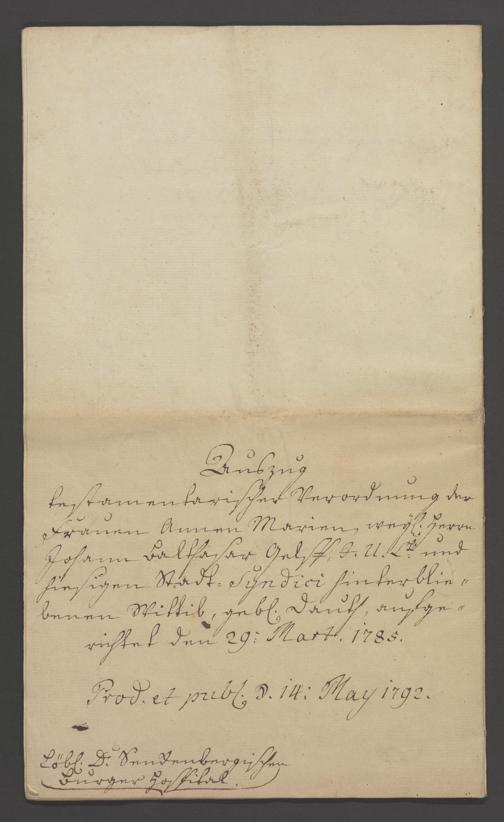 Auszug
testamentarischer Verordnung der
Frauen Annen Marien, weyl. Herrn
Johann Balthasar Gelff, J. U. Lti und
hiesigen Stadt-Syndici hinterblie-
benen Wittib, gebl. Dauth, aufge-
richtet den 29: Mart. 1785.
Prod. et publ. d. 14: May 1792.
Löbl. Dr. Senkenbergischen
Burger Hospital.